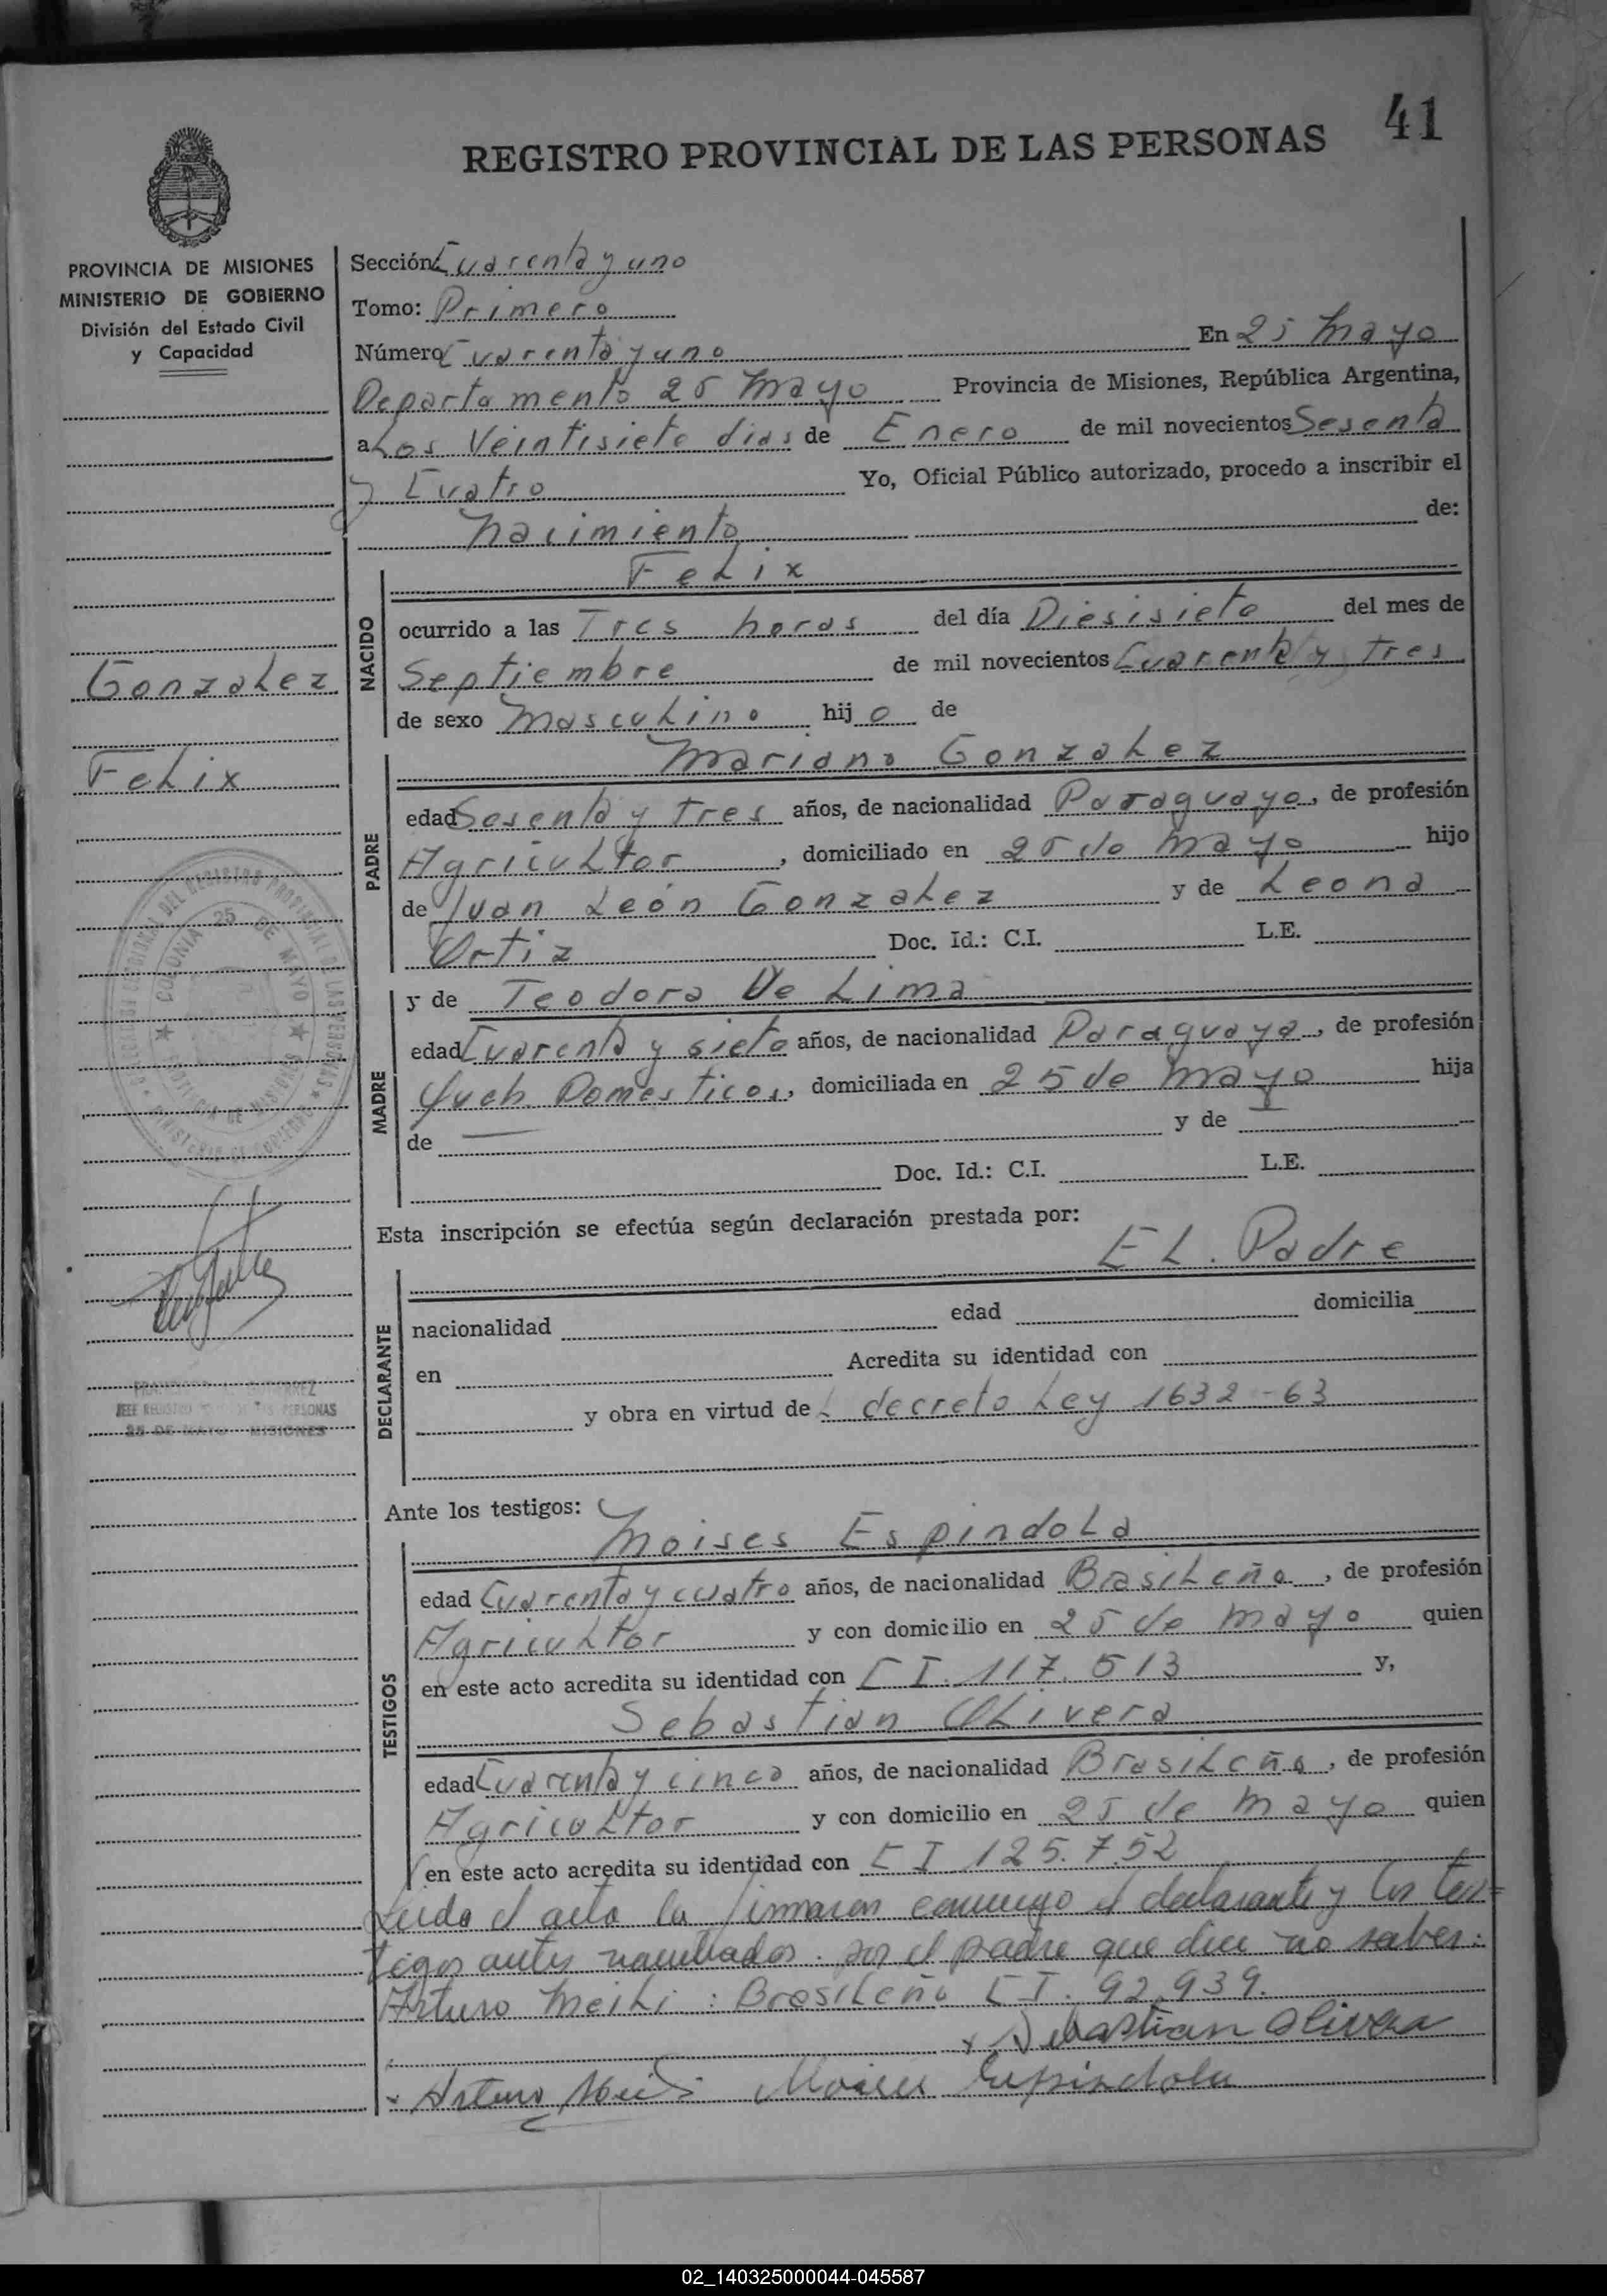 41
REGISTRO PROVINCIAL DE LAS PERSONAS
PROVINCIA DE MISIONES
MINISTERIO DE GOBIERNO
División del Estado Civil
y Capacidad
Gonzalez
Felix
COLONIA 25 DE MAYO
JEFE REGISTRO DE LAS PERSONAS
25 DE MAYO MISIONES
Sección Cuarenta y uno
Tomo: Primero
Número Cuarenta y uno En 25 Mayo
Departamento 25 Mayo Provincia de Misiones, República Argentina,
a Los Veintisiete dias de Enero de mil novecientos Sesenta
y Cuatro Yo, Oficial Público autorizado, procedo a inscribir el
Nacimiento de:
NACIDO
Felix
ocurrido a las Tres horas del día Diesisiete del mes de
Septiembre de mil novecientos Cuarenta y Tres
de sexo Masculino hij o de
PADRE
Mariano Gonzalez
edad Sesenta y Tres años, de nacionalidad Paraguayo, de profesión
Agricultor, domiciliado en 25 de Mayo hijo
de Juan León Gonzalez y de Leona
Ortiz Doc. Id.: C.I. L.E.
MADRE
y de Teodora De Lima
edad Cuarenta y siete años, de nacionalidad Paraguaya, de profesión
Queh. Domesticos, domiciliada en 25 de Mayo hija
de — y de
Doc. Id.: C.I. L.E.
Esta inscripción se efectúa según declaración prestada por:
DECLARANTE
EL. Padre
nacionalidad edad domicilia
en Acredita su identidad con
y obra en virtud de decreto Ley 1632-63
Ante los testigos:
TESTIGOS
Moises Espindola
edad Cuarenta y cuatro años, de nacionalidad Brasileña, de profesión
Agricultor y con domicilio en 25 de Mayo quien
en este acto acredita su identidad con C I. 117.513 y,
Sebastian Olivera
edad Cuarenta y cinco años, de nacionalidad Brasileña, de profesión
Agricultor y con domicilio en 25 de Mayo quien
en este acto acredita su identidad con C I 125.752
Leida el acta la firmaron conmigo el declarante y los tes=
tigos antes nombrados. por el padre que dice no saber:
Arturo Meili: Brasileño C I. 92.939.
x Sebastian Olivera
x Arturo Meili Moises Espindola
02_140325000044-045587